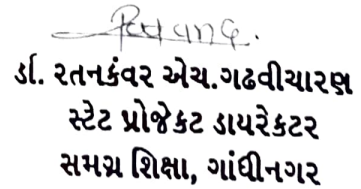 ર્ડા. રતનકંવર એચ.ગઢવીચારણ
સ્ટેટ પ્રોજેકટ ડાયરેકટર
સમગ્ર શિક્ષા, ગાંધીનગર